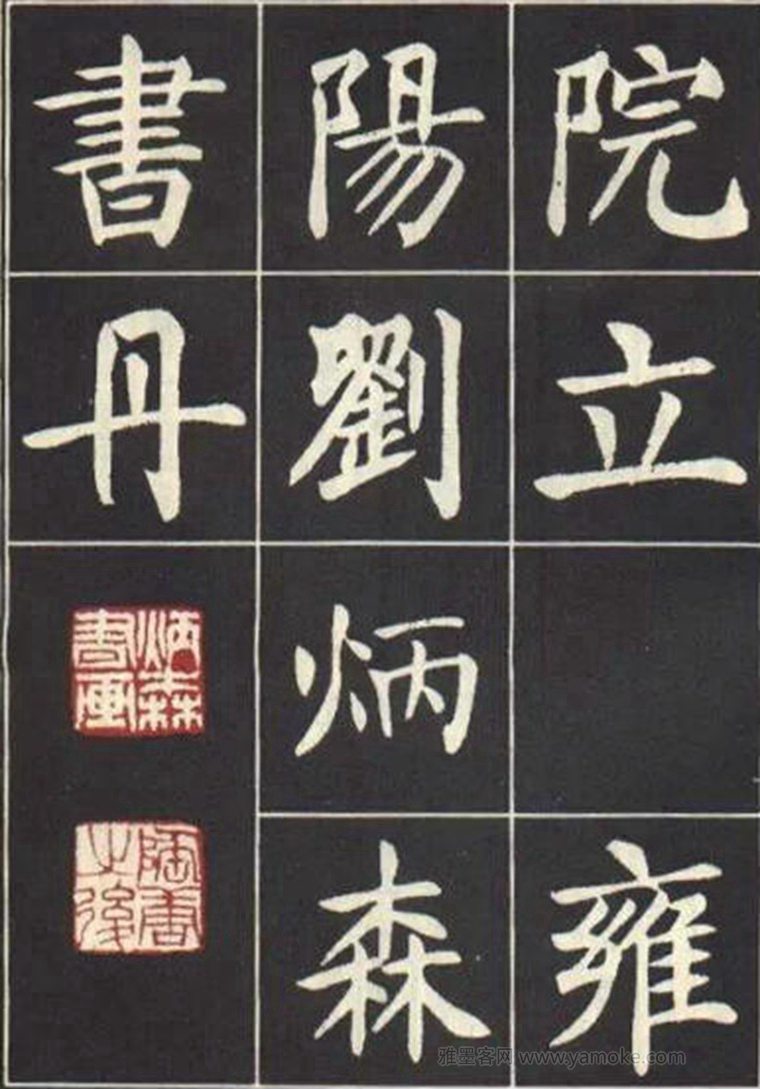 院立　雍
陽劉炳森
書丹
炳森書画
陶唐之後
雅墨客网 www.yamoke.com